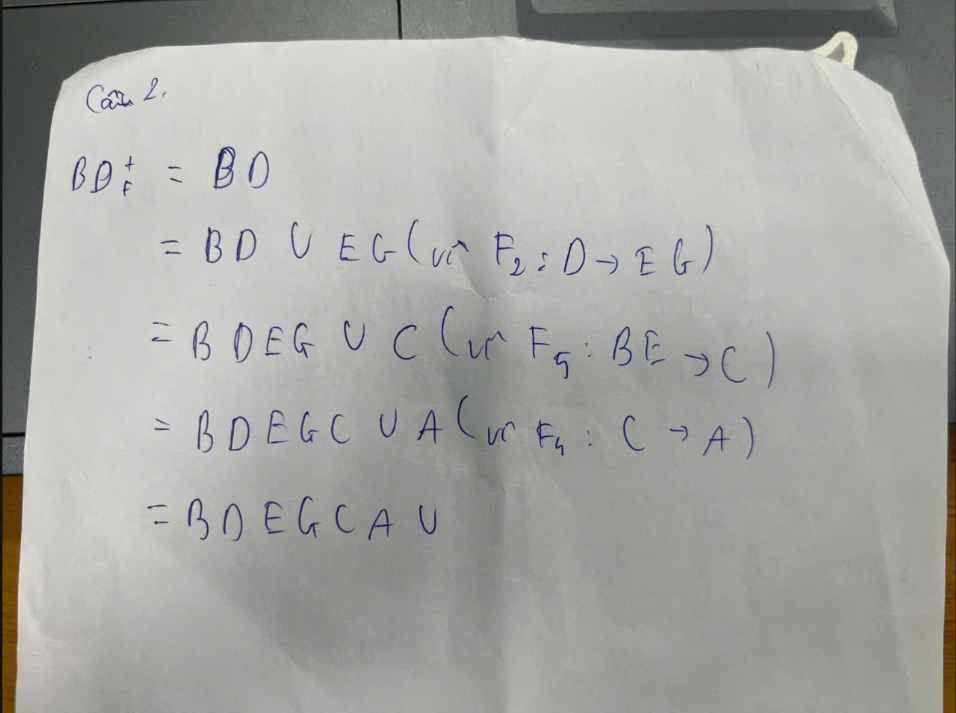 Câu 2.
BD⁺F = BD
= BD ∪ EG (vì F₂ : D → EG)
= BDEG ∪ C (vì F₅ : BE → C)
= BDEGC ∪ A (vì F₄ : C → A)
= BDEGCA ∪